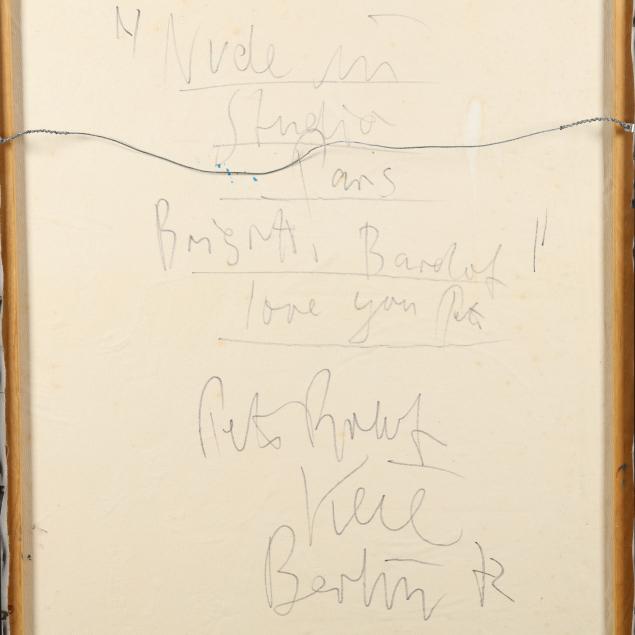 "Nude in
Studio
Paris
Brigitt, Bardot"
love you Pet
Peter Robert
Keil
Berlin 72